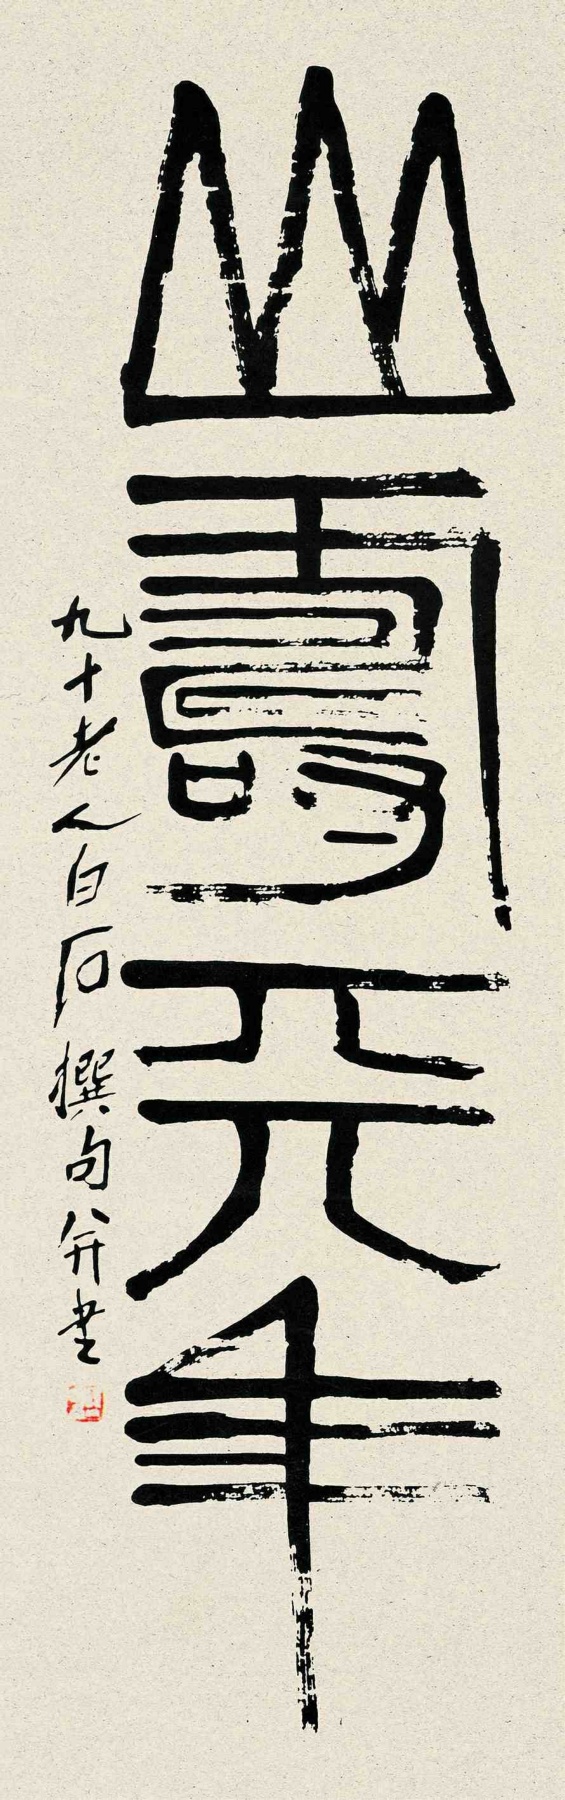 山壽年
九十老人白石撰句并書